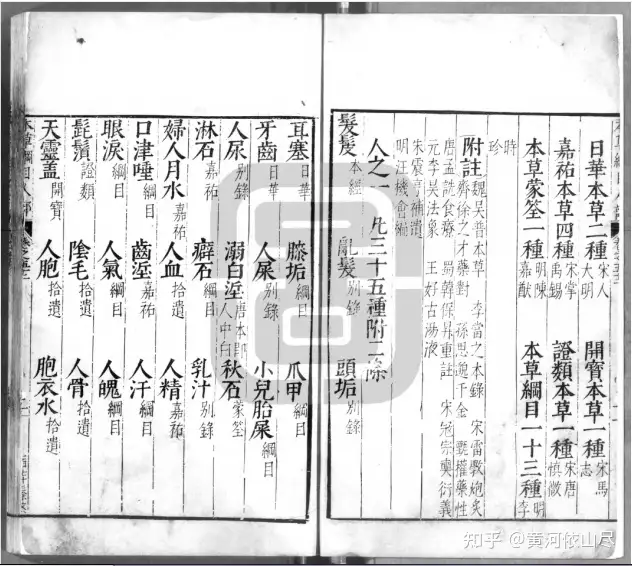 日華本草二種 宋人大明 開寶本草一種 宋馬志
嘉祐本草四種 宋掌禹錫 證類本草一種 宋唐慎微
本草蒙筌一種 明陳嘉 本草綱目一十三種 明李
時珍
附註 魏吳普本草 李當之本錄 宋雷斆炮炙
齊徐之才藥對 孫思邈千金 甄權藥性
唐孟詵食療 蜀韓保昇重註 宋寇宗奭衍義
元李杲法象 王好古湯液
朱震亨補遺
明汪機會編
人之一 凡三十五種附二條
髮髲 本經 亂髮 別錄 頭垢 別錄
耳塞 日華 膝垢 綱目 爪甲 綱目
牙齒 日華 人屎 別錄 小兒胎屎 綱目
人尿 別錄 溺白垽 唐本即人中白 秋石 蒙筌
淋石 嘉祐 癖石 綱目 乳汁 別錄
婦人月水 嘉祐 人血 拾遺 人精 嘉祐
口津唾 綱目 齒垽 嘉祐 人汗 綱目
眼淚 綱目 人氣 綱目 人魄 綱目
髭鬚 證類 陰毛 拾遺 人骨 拾遺
天靈蓋 開寶 人胞 拾遺 胞衣水 拾遺
本草綱目人部
知乎 @黄河依山尺